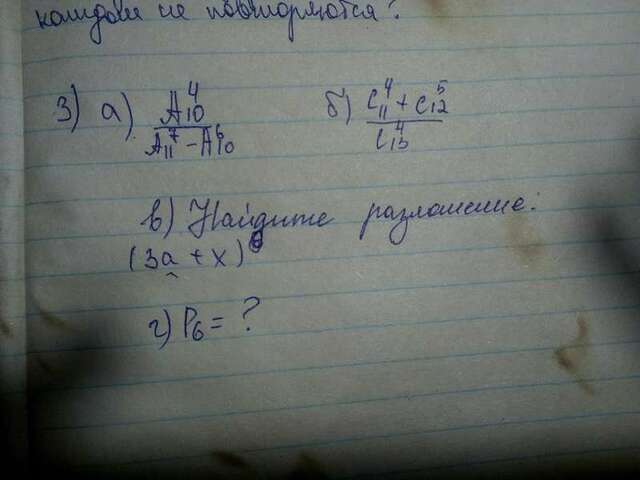 каждой не повторяются?
3) а) A₁₀⁴ / (A₁₁⁷ - A₁₀⁶) б) (C₁₁⁴ + C₁₂⁵) / C₁₃⁴
в) Найдите разложение:
(3a + x)
г) P₆ = ?